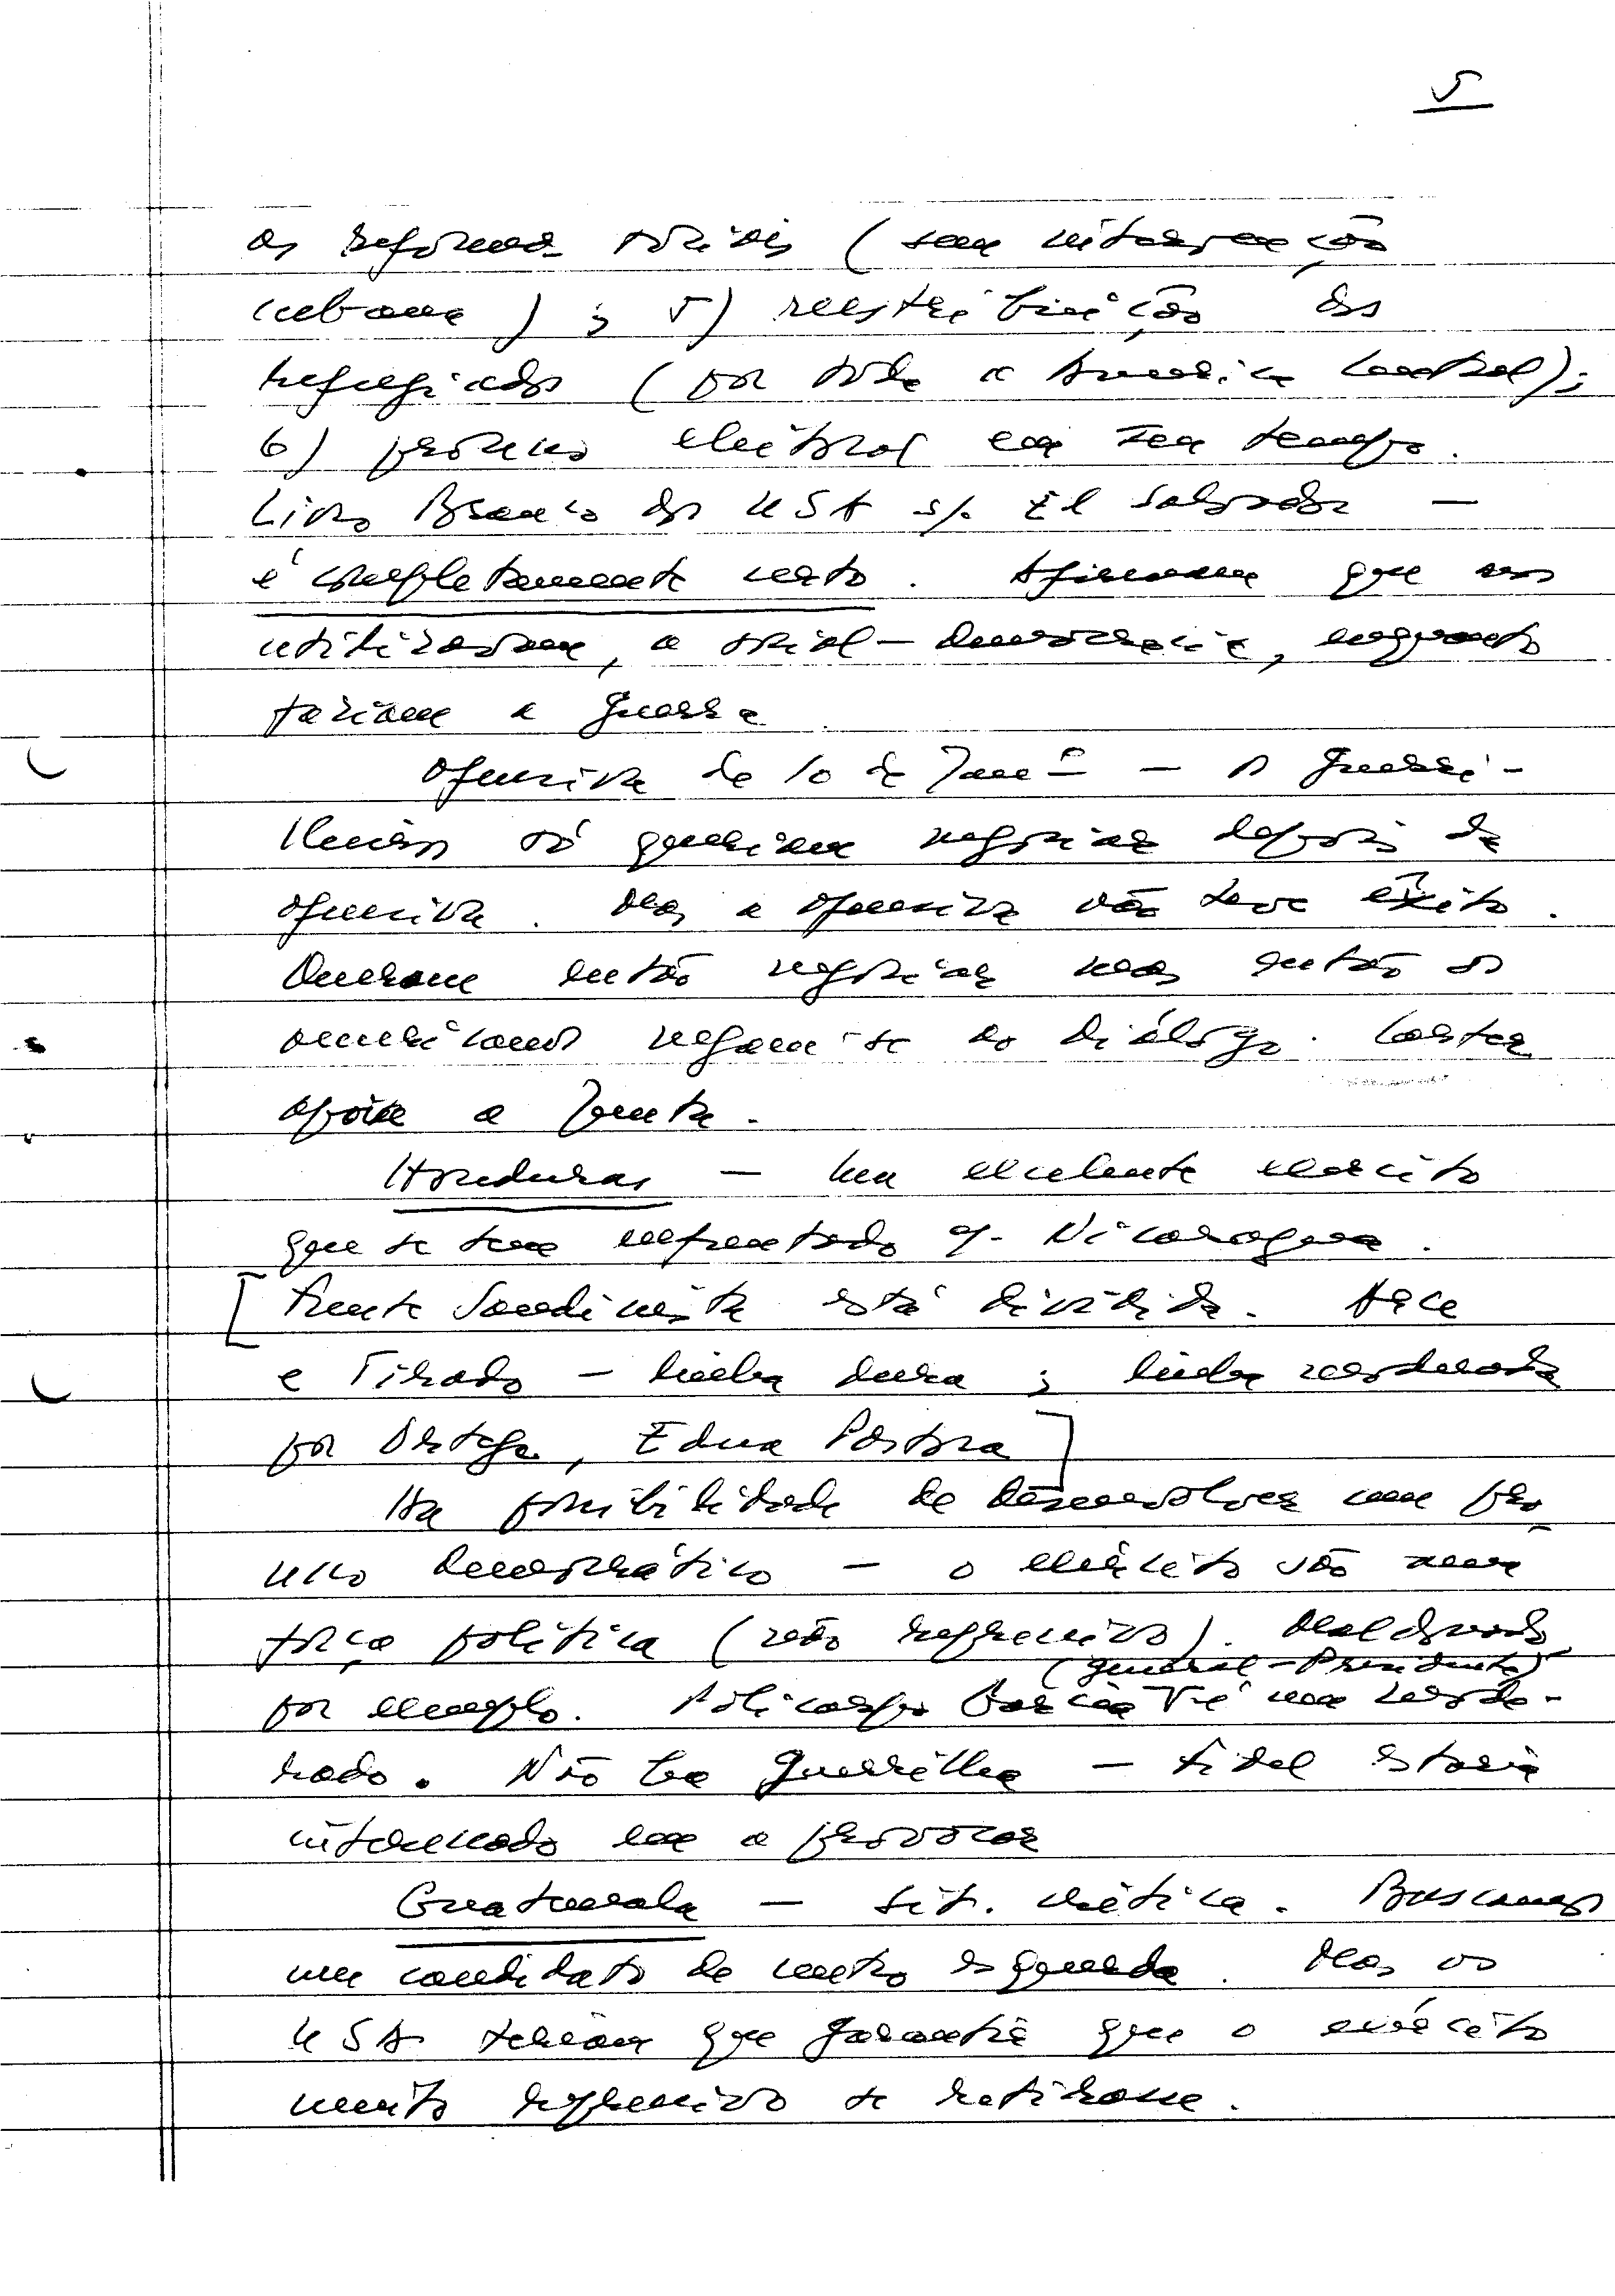 5
as reformas sociais (sem intervenção
cubana); 5) redistribuição dos
refugiados (por toda a America Central);
6) processo eleitoral em seu tempo.
Livro Branco dos USA s/. El Salvador —
é completamente certo. Afirmam que nos
utilizavam, a social-democracia, enquanto
faziam a guerra.
Ofensiva de 10 de Janº — os guerri-
lheiros só queriam negociar depois da
ofensiva. Mas a ofensiva não teve êxito.
Queriam então negociar mas então os
americanos negam-se ao diálogo. Carter
apoia a Junta.
Honduras — um excelente exercito
que se tem enfrentado c/. Nicaragua.
[Frente Sandinista está dividida. Arce
e Tirado — linha dura; linha moderada
por Ortega, Eden Pastora]
Ha possibilidade de desenvolver um pro-
cesso democrático — o exército são uma
força politica (não repressivo). Maldonado
(general-Presidente)
por exemplo. Policarpo Garcia é um mode-
rado. Não ha guerrilha — Fidel estaria
interessado em a provocar
Guatemala — Sit. crítica. Buscamos
um candidato de centro esquerda. Mas os
USA teriam que garantir que o exército
muito repressivo se retirasse.